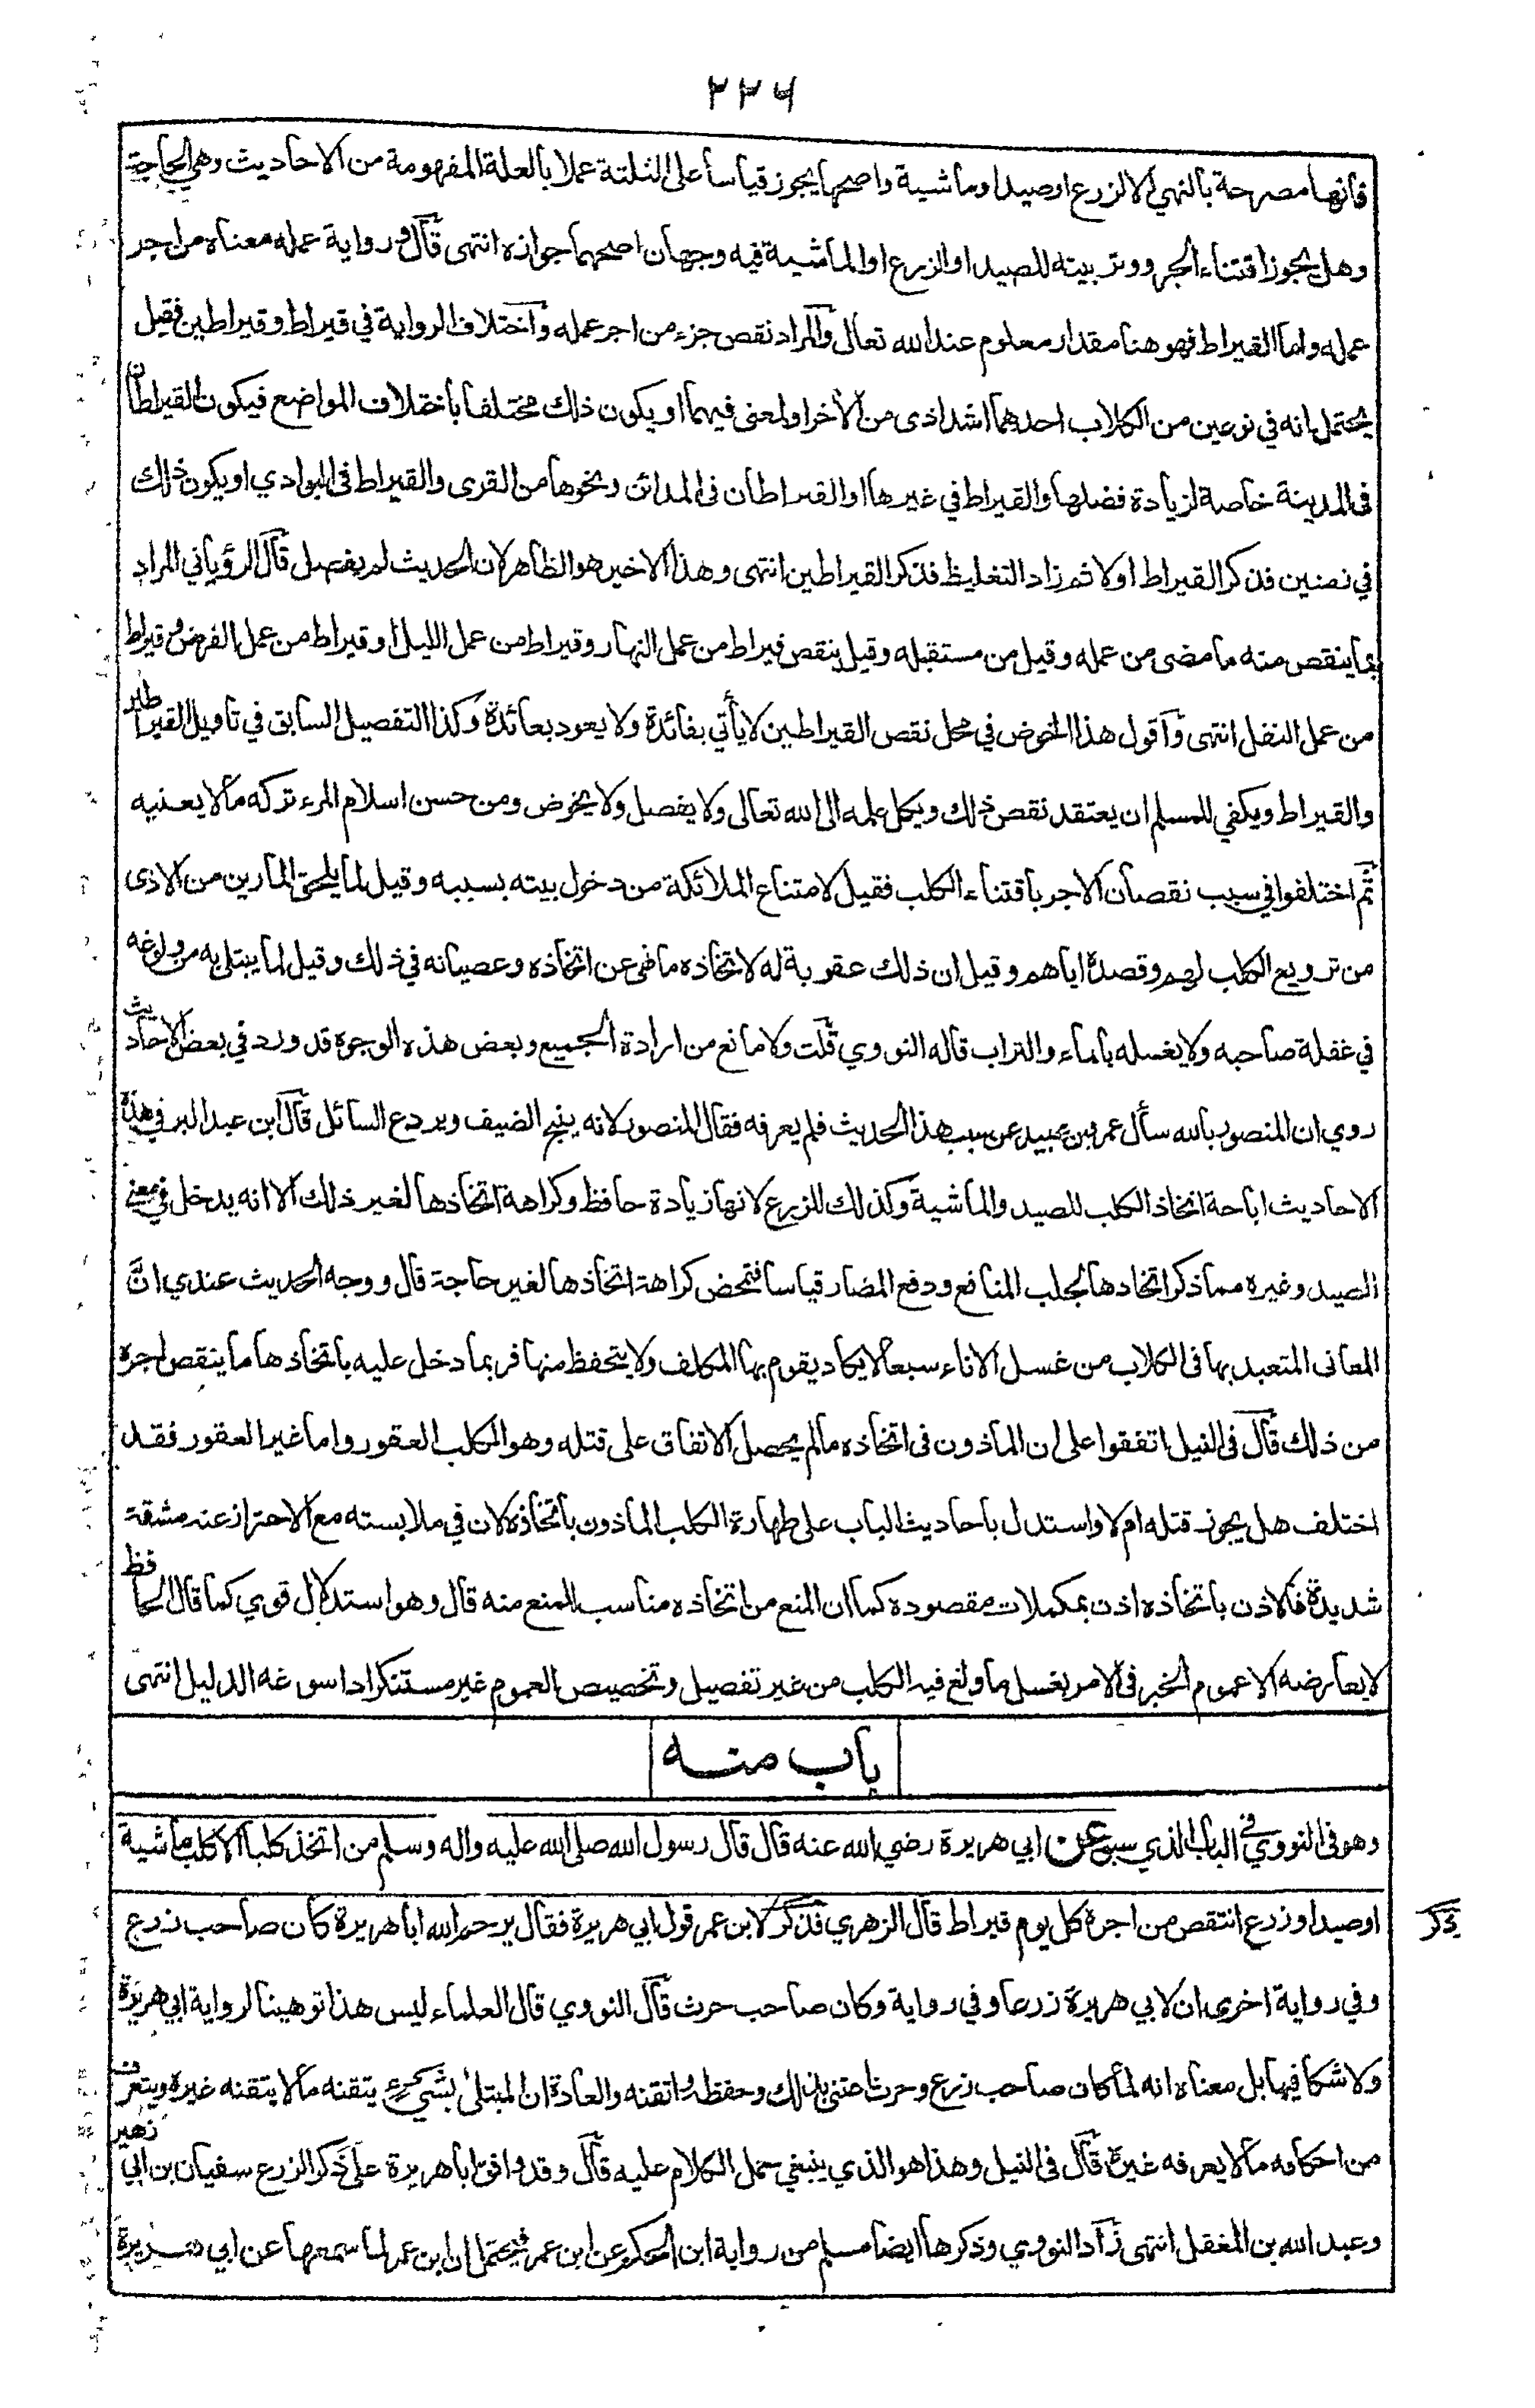 ٢٢٦
فانها مصرحة بالنهي الا لزرع او صيد او ماشية واصحها يجوز قياسا على الثلثة عملا بالعلة المفهومة من الاحاديث وهي الحاجة
وهل يجوز اقتناء الجرو وتربيته للصيد او الزرع او الماشية فيه وجهان اصحهما جوازه انتهى قال و رواية عمله معناه من اجر
عمله واما القيراط فهو هنا مقدار معلوم عند الله تعالى والمراد نقص جزء من اجر عمله واختلاف الرواية في قيراط وقيراطين فقيل
يحتمل انه في نوعين من الكلاب احدهما اشد اذى من الأخر او لمعنى فيهما او يكون ذلك مختلفا باختلاف المواضع فيكون القيراطان
فى المدينة خاصة لزيادة فضلها والقيراط في غيرها او القيراطان فى المدائن ونحوها من القرى والقيراط فى البوادي او يكون ذلك
في زمنين فذكر القيراط اولا ثم زاد التغليظ فذكر القيراطين انتهى وهذا الاخير هو الظاهر لان الحديث لم يفصل قال الرؤياني المراد
بما ينقص منه ما مضى من عمله وقيل من مستقبله وقيل ينقص قيراط من عمل النهار وقيراط من عمل الليل او قيراط من عمل الفرض وقيراط
من عمل النفل انتهى وأقول هذا الخوض في محل نقص القيراطين لا يأتي بفائدة ولا يعود بعائدة وكذا التفصيل السابق في تاويل القيراطين
والقيراط ويكفي للمسلم ان يعتقد نقص ذلك ويكل علمه الى الله تعالى ولا يفصل ولا يخوض ومن حسن اسلام المرء تركه ما لا يعنيه
ثم اختلفوا في سبب نقصان الاجر باقتناء الكلب فقيل لامتناع الملائكة من دخول بيته بسببه وقيل لما يلحق المارين من الاذى
من ترويع الكلب لهم وقصده اياهم وقيل ان ذلك عقوبة له لاتخاذه ما نهى عن اتخاذه وعصيانه في ذلك وقيل لما يبتلى به من ولوغه
في غفلة صاحبه ولا يغسله بالماء والتراب قاله النووي قلت ولا مانع من ارادة الجميع وبعض هذه الوجوه قد ورد في بعض الاحاديث
روي ان المنصور بالله سأل عمرو بن عبيد عن سبب هذا الحديث فلم يعرفه فقال المنصور لانه ينبح الضيف ويردع السائل قال ابن عبد البر في هذه
الاحاديث اباحة اتخاذ الكلب للصيد والماشية وكذلك للزرع لانها زيادة حافظ وكراهة اتخاذها لغير ذلك الا انه يدخل في معنى
الصيد وغيره مما ذكر اتخاذها لجلب المنافع ودفع المضار قياسا فتمحض كراهة اتخاذها لغير حاجة قال ووجه الحديث عندي انّ
المعانى المتعبد بها فى الكلاب من غسل الاناء سبعا لا يكاد يقوم بها المكلف ولا يتحفظ منها فربما دخل عليه باتخاذها ما ينقص اجره
من ذلك قال فى النيل اتفقوا على ان الماذون فى اتخاذه ما لم يحصل الاتفاق على قتله وهو الكلب العقور واما غير العقور فقد
اختلف هل يجوز قتله ام لا واستدل باحاديث الباب على طهارة الكلب الماذون باتخاذه لان في ملابسته مع الاحتراز عنه مشقة
شديدة فالاذن باتخاذه اذن بمكملات مقصوده كما ان المنع من اتخاذه مناسب للمنع منه قال وهو استدلال قوي كما قال الحافظ
لا يعارضه الا عموم الخبر فى الامر بغسل ما ولغ فيه الكلب من غير تفصيل وتخصيص العموم غير مستنكر اذا سوغه الدليل انتهى
باب منه
وهو فى النووي في الباب الذي سبق عن ابي هريرة رضي الله عنه قال قال رسول الله صلى الله عليه واله وسلم من اتخذ كلبا الا كلب ماشية
او صيد او زرع انتقص من اجره كل يوم قيراط قال الزهري فذكر لابن عمر قول ابي هريرة فقال يرحم الله ابا هريرة كان صاحب زرع
وفي رواية اخرى ان لابي هريرة زرعا وفي رواية وكان صاحب حرث قال النووي قال العلماء ليس هذا توهينا لرواية ابي هريرة
ولا شكا فيها بل معناه انه لما كان صاحب زرع وحرث اعتنى بذلك وحفظه واتقنه والعادة ان المبتلى بشيء يتقنه ما لا يتقنه غيره ويتعرف
من احكامه ما لا يعرفه غيره قال فى النيل وهذا هو الذي ينبغي حمل الكلام عليه قال وقد وافق ابا هريرة على ذكر الزرع سفيان بن ابي زهير
وعبد الله بن المغفل انتهى زاد النووي وذكرها ايضا مسلم من رواية ابن الحكم عن ابن عمر فيحتمل ان ابن عمر لما سمعها عن ابي هريرة